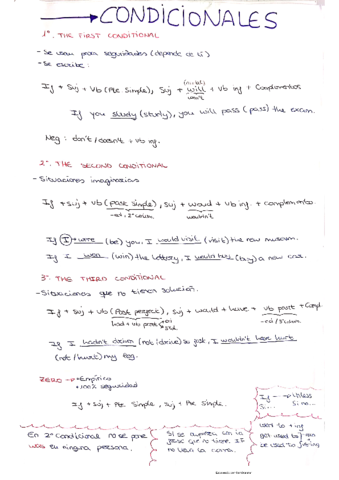 →CONDICIONALES
1º. THE FIRST CONDITIONAL
- Se usan para seguridades (depende de ti)
- Se escribe:
(no + bl)
If + Suj + Vb (Pte Simple), Suj + will + Vb inf + Complementos
won't
If you study (study), you will pass (pass) the exam.
Neg : don't / doesn't + vb inf.
2º. THE SECOND CONDITIONAL
- Situaciones imaginarias
If + suj + vb (past simple), suj + would + vb inf. + complementos
-ed, 2ª column wouldn't
If (I) + were (be) you, I would visit (visit) the new museum.
If I won (win) the lottery, I would buy (buy) a new car.
3º. THE THIRD CONDITIONAL
- Situaciones que no tienen solución.
If + Suj + Vb (Past perfect), Suj + would + have + vb past + Compl.
had + vb past -ed / 3ª column
If I hadn't driven (not/drive) so fast, I wouldn't have hurt
(not/hurt) my leg.
ZERO → • Empírico
• 100% seguridad
If + Suj + Pte Simple, Suj + Pte Simple.
If - → Unless
Si... Si no...
En 2º Condicional no se pone
was en ninguna persona.
Si se empieza con la
frase que no tiene If
no lleva la coma.
used to + inf
get used to
be used to